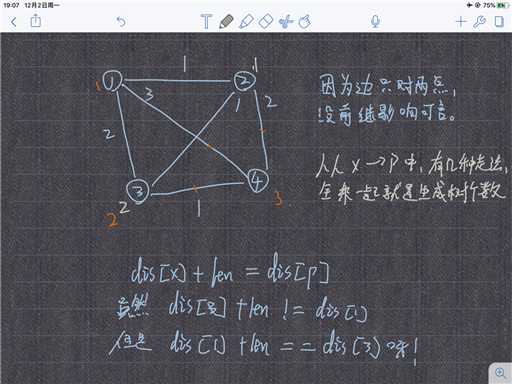 19:07 12月2日周一
75%
1
① ② 1
1
3 1 2
2
③ ④
2
2 1 3
因为边只对两点,
没前继影响可言。
从 x→p 中, 有几种走法,
全乘一起就是生成树个数
dis[x] + len = dis[p]
虽然 dis[2] + len != dis[1]
但是 dis[1] + len == dis[3] 呀!